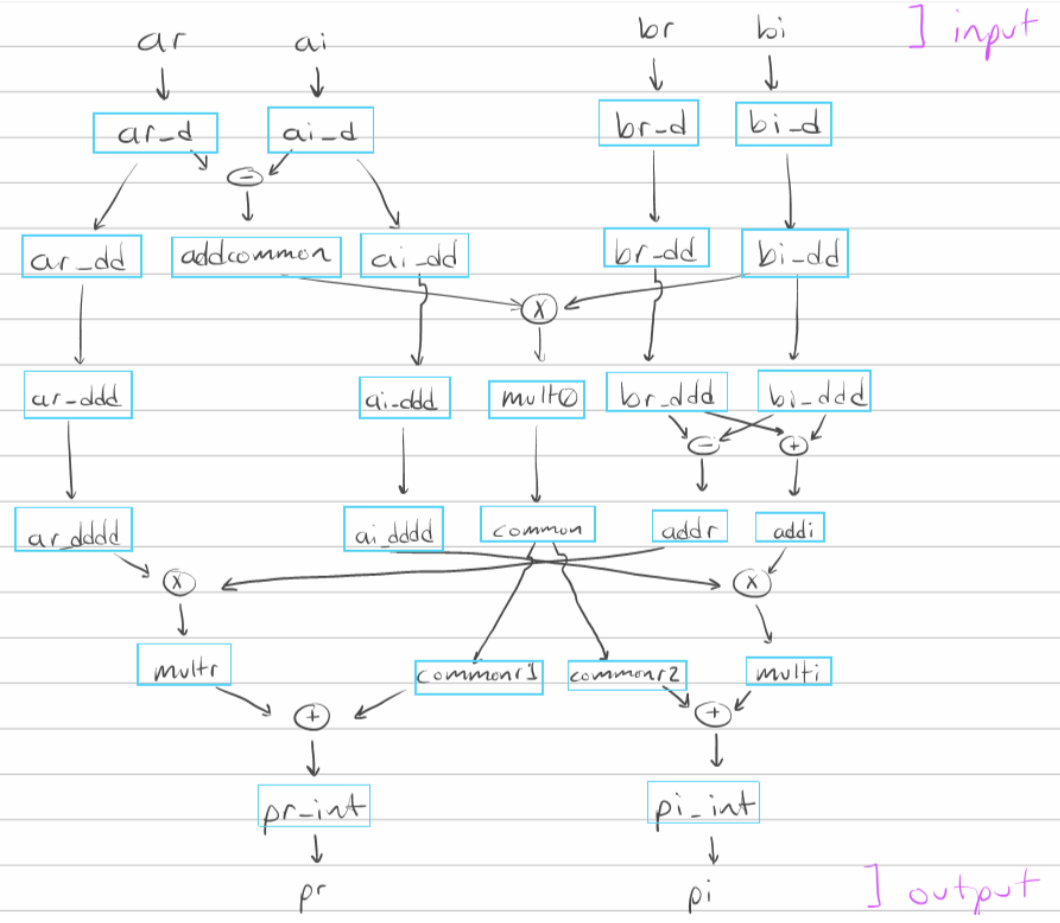 ar ai br bi ] input
ar_d ai_d br_d bi_d
-
ar_dd addcommon ai_dd br_dd bi_dd
X
ar_ddd ai_ddd mult0 br_ddd bi_ddd
- +
ar_dddd ai_dddd common addr addi
X X
multr commonr1 commonr2 multi
+ +
pr_int pi_int
pr pi ] output